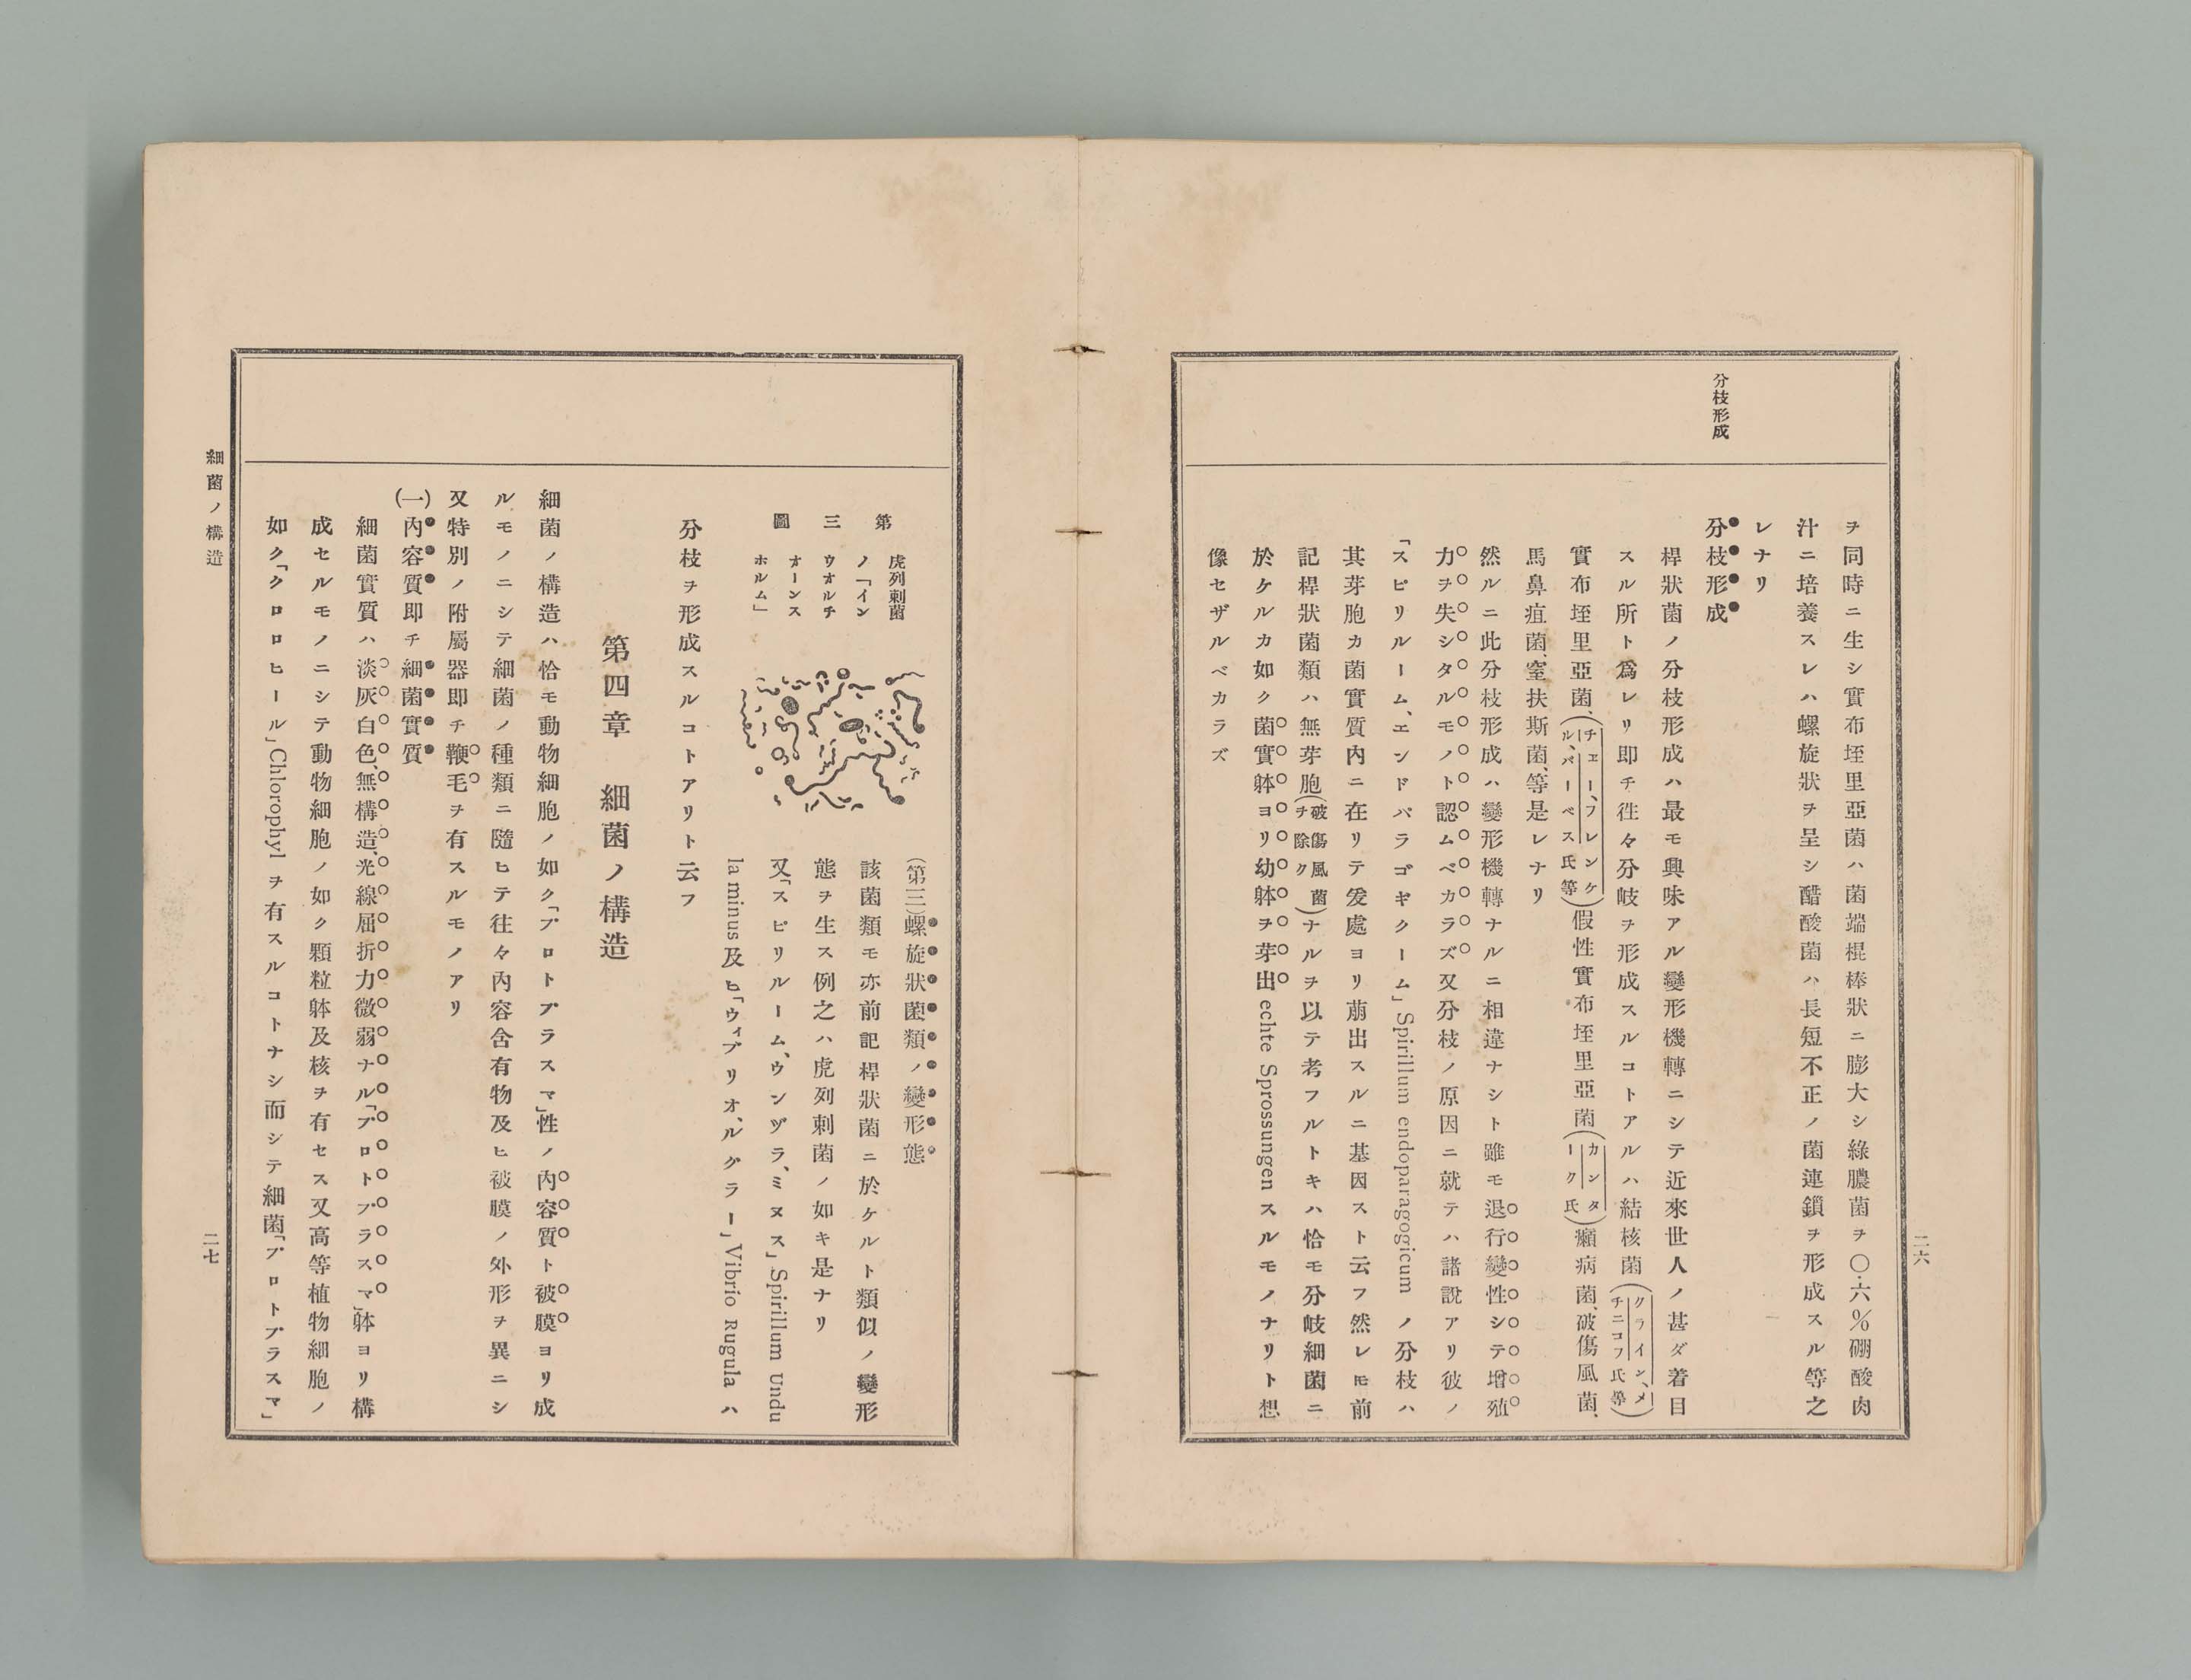 分枝形成
二六
ヲ同時ニ生シ實布垤里亞菌ハ菌端棍棒狀ニ膨大シ綠膿菌ヲ〇・六%硼酸肉
汁ニ培養スレハ螺旋狀ヲ呈シ醋酸菌ハ長短不正ノ菌連鎖ヲ形成スル等之
レナリ
分枝形成
桿狀菌ノ分枝形成ハ最モ興味アル變形機轉ニシテ近來世人ノ甚ダ着目
スル所ト爲レリ卽チ徃々分岐ヲ形成スルコトアルハ結核菌(クライン、メチニコフ氏等)
實布垤里亞菌、(チエー、フレンケル、バーベス氏等)假性實布垤里亞菌(カンターク氏)癩病菌、破傷風菌、
馬鼻疽菌、窒扶斯菌、等是レナリ
然ルニ此分枝形成ハ變形機轉ナルニ相違ナシト雖モ退行變性シテ增殖
力ヲ失シタルモノト認ムベカラズ又分枝ノ原因ニ就テハ諸說アリ彼ノ
「スピリルーム、エンドパラゴギクーム」Spirillum endoparagogicum ノ分枝ハ
其芽胞カ菌實質內ニ在リテ爰處ヨリ萠出スルニ基因スト云フ然レ𪜈前
記桿狀菌類ハ無芽胞(破傷風菌ヲ除ク)ナルヲ以テ考フルトキハ恰モ分岐細菌ニ
於ケルカ如ク菌實躰ヨリ幼躰ヲ芽出 echte Sprossungen スルモノナリト想
像セザルベカラズ
第三圖
虎列刺菌
ノ「イン
ウオルチ
オーンス
ホルム」
(第三)螺旋狀菌類ノ變形態
該菌類モ亦前記桿狀菌ニ於ケルト類似ノ變形
態ヲ生ス例之ハ虎列刺菌ノ如キ是ナリ
又「スピリルーム、ウンヅラ、ミヌス」Spirillum Undu
la minus 及ヒ「ウィブリオ、ルグラー」Vibrio Rugula ハ
分枝ヲ形成スルコトアリト云フ
第四章　細菌ノ構造
細菌ノ構造ハ恰モ動物細胞ノ如ク「プロトプラスマ」性ノ內容質ト被膜ヨリ成
ルモノニシテ細菌ノ種類ニ隨ヒテ往々內容含有物及ヒ被膜ノ外形ヲ異ニシ
又特別ノ附屬器卽チ鞭毛ヲ有スルモノアリ
(一)內容質卽チ細菌實質
細菌實質ハ淡灰白色、無構造、光線屈折力微弱ナル「プロトプラスマ」躰ヨリ構
成セルモノニシテ動物細胞ノ如ク顆粒躰及核ヲ有セス又高等植物細胞ノ
如ク「クロロヒール」Chlorophyl ヲ有スルコトナシ而シテ細菌「プロトプラスマ」
細菌ノ構造
二七